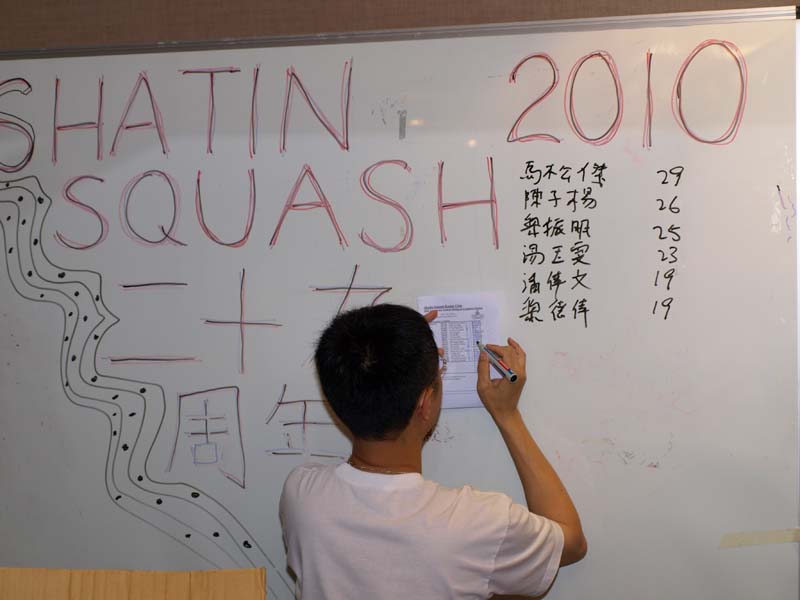 SHATIN 2010
SQUASH
二十九
周年
馬松傑 29
陳子楊 26
梁振明 25
湯正雯 23
潘偉文 19
梁德偉 19